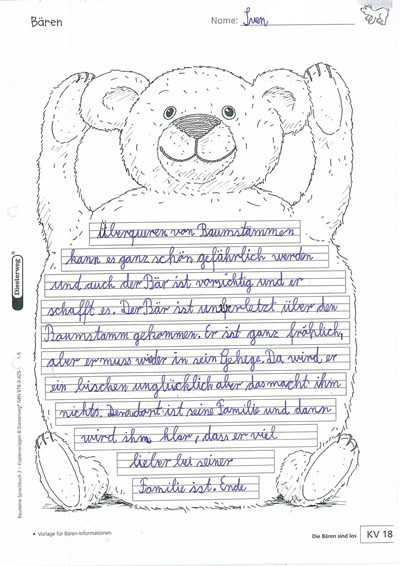 Bären
Name: Sven
Überqueren von Baumstämmen
kann es ganz schön gefährlich werden
und auch der Bär ist vorsichtig und er
schafft es. Der Bär ist unverletzt über den
Baumstamm gekommen. Er ist ganz fröhlich,
aber er muss wieder in sein Gehege. Da wird er
ein bischen unglücklich aber das macht ihm
nichts. Denn dort ist seine Familie und dann
wird ihm klar, dass er viel
lieber bei seiner
Familie isst. Ende
Diesterweg
• Vorlage für Bären-Informationen
Die Bären sind los
KV 18